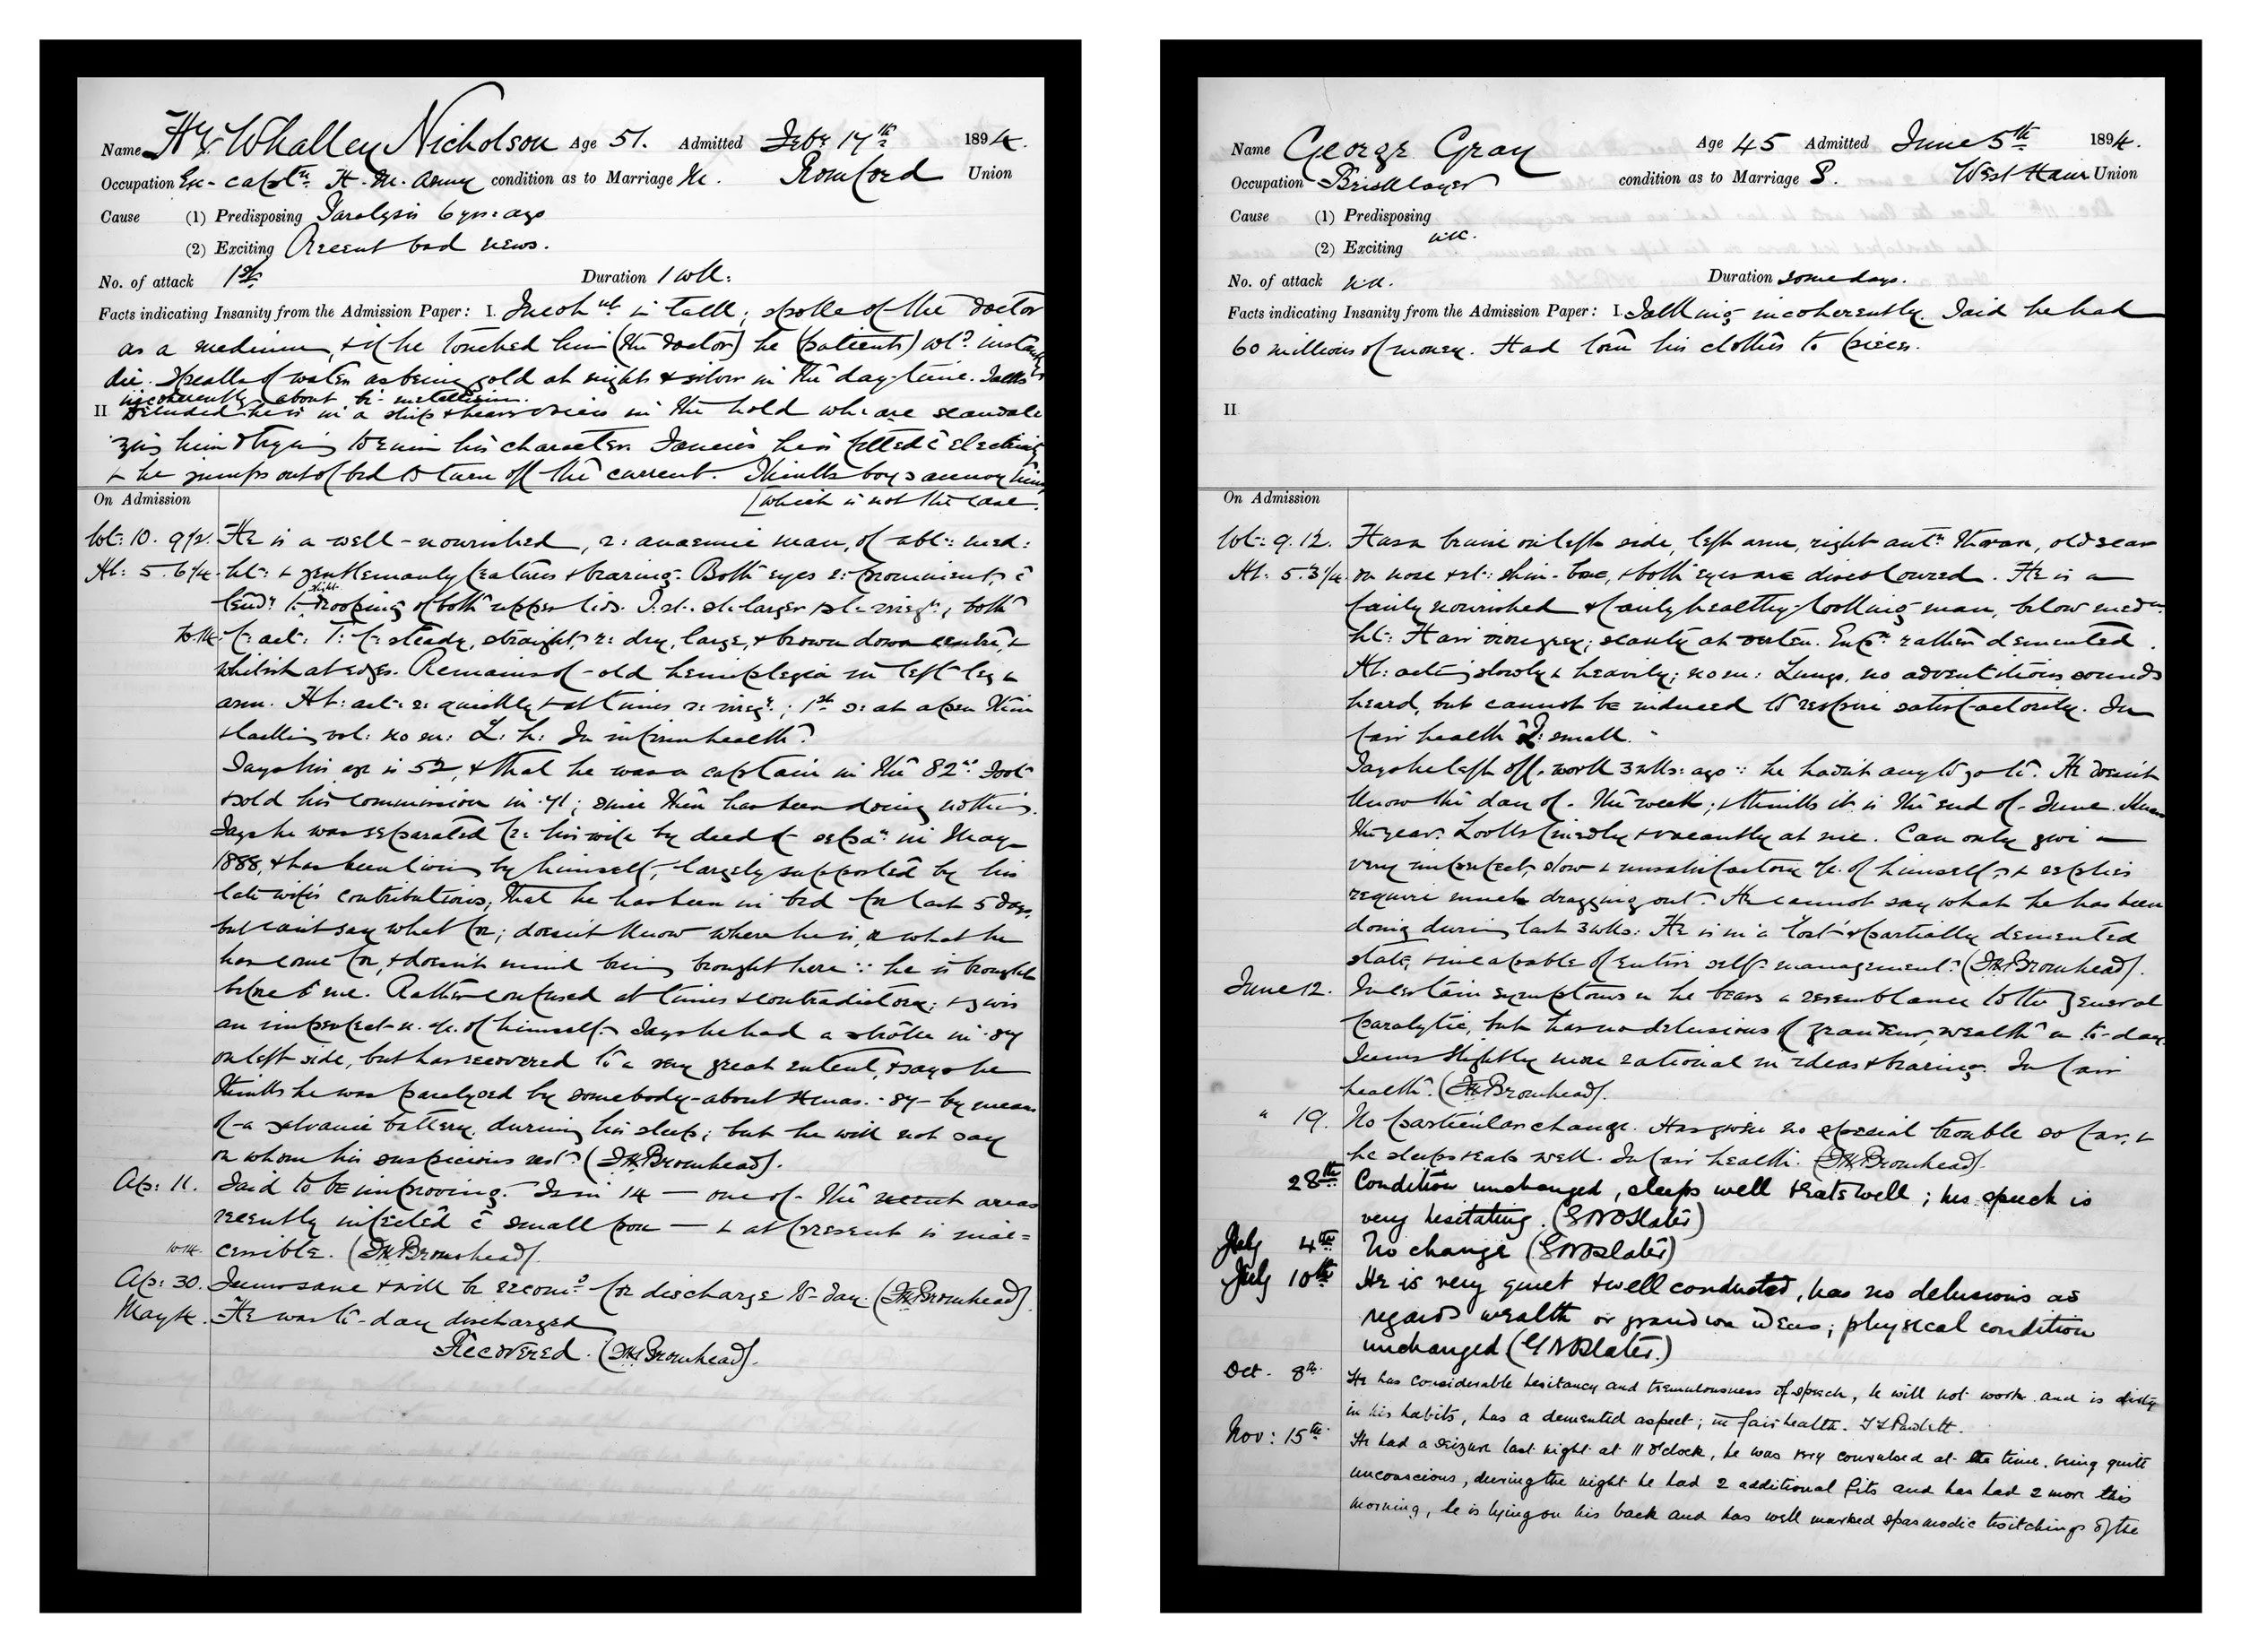 Name H. Y. Whalley Nicholson Age 51. Admitted Feby 17th 1894.
Occupation Ex-captn. H. M. Army condition as to Marriage M. Romford Union
Cause (1) Predisposing Paralysis 6 yrs: ago
(2) Exciting Recent bad news.
No. of attack 1st. Duration 1 wk:
Facts indicating Insanity from the Admission Paper: I. Incohnt in talk; spoke of the doctor
as a medium, & if he touched him (the doctor) he (patient) wld.
die. Speaks of water as being gold at night & silver in the day-time. Talks
incoherently about bi-metallism.
II Deluded he is in a ship & hears voices in the hold who are scandali
zing him & trying to ruin his character. Fancies he is filled c̄ electricity
& he jumps out of bed to turn off the current. Thinks boys annoy him
[which is not the case.
On Admission
Wt: 10. 9½. He is a well-nourished, r: anaemic man, of abt: med:
Ht: 5. 6¼. ht: & gentlemanly features & bearing. Both eyes r: prominent, c̄
tendy to slight drooping of both upper lids. larger both
steady, straight, r: dry, large, & brown down centre, &
whitish at edges. Remains of old hemiplegia in left leg &
arm. Ht: act: r: quickly & at times r: 1st s: at apex thin
& lackg vol: no m: L. h: In infirm health.
Says his age is 52, & that he was a captain in the 82nd Foot
& sold his commission in '71; since then has been doing nothing.
Says he was separated fr: his wife by deed of sepan in May
1888, & has been living by himself, largely supported by his
late wife's contributions; that he has been in bed for last 5 days,
but can't say what for; doesn't know where he is, or what he
has come for, & doesn't mind being brought here ∵ he is brought
before me. Rather confused at times & contradictory; & gives
an imperfect a/c. of himself. Says he had a stroke in '87
on left side, but has recovered to a very great extent, & says he
thinks he was paralysed by somebody about Xmas. '87 by means
of a galvanic battery during his sleep; but he will not say
on whom his suspicions rest. (F.H. Bromhead).
Ap: 11. Said to be improving. Is in 14 — one of the recent areas
recently infected c̄ small pox — & at present is inac=
cessible. (F.H. Bromhead).
Ap: 30. Seems sane & will be recomd for discharge to-day. (F.H. Bromhead).
May 4. He was to-day discharged
Recovered. (F.H. Bromhead).
Name George Gray Age 45 Admitted June 5th 1894.
Occupation Bricklayer condition as to Marriage S. West Ham Union
Cause (1) Predisposing
(2) Exciting n.k.
No. of attack n.k. Duration some days.
Facts indicating Insanity from the Admission Paper: I. Talking incoherently. Said he had
60 millions of money. Had torn his clothes to pieces.
II
On Admission
Wt: 9. 12. Has a bruise on left side, left arm, right antr thorax, old scar
Ht: 5. 3¼. on nose & rt: shin-bone, & both eyes are discoloured. He is a
fairly nourished & fairly healthy-looking man, below medm
ht: Hair iron grey; scanty at vertex. Expn rather demented.
Ht: acting slowly & heavily; no m: Lungs, no adventitious sounds
heard, but cannot be induced to respire satisfactorily. In
fair health. small.
Says he left off work 3 wks: ago ∵ he hadn't any to go to. He doesn't
know the day of the week; & thinks it is the end of June. Knows
the year. Looks fixedly & vacantly at me. Can only give a
very imperfect, slow & unsatisfactory a/c. of himself, & replies
require much dragging out. He cannot say what he has been
doing during last 3 wks: He is in a 'lost' & partially demented
state, & incapable of entire self-management. (F.H. Bromhead).
June 12. In certain symptoms he bears a resemblance to the general
paralytic, but has no delusions of grandeur, wealth to-day.
Seems slightly more rational in ideas & bearing. In fair
health. (F.H. Bromhead).
" 19. No particular change. Has given no special trouble so far, &
he sleeps & eats well. In fair health. (F.H. Bromhead).
28th Condition unchanged, sleeps well & eats well; his speech is
very hesitating. (G N O Slater)
July 4th No change (G N O Slater)
July 10th He is very quiet & well conducted, has no delusions as
regards wealth or grandiose ideas; physical condition
unchanged (G N O Slater.)
Oct. 8th. He has considerable hesitancy and tremulousness of speech, he will not work and is dirty
in his habits, has a demented aspect; in fair health.
Nov: 15th He had a seizure last night at 11 O'clock, he was very convulsed at the time, being quite
unconscious, during the night he had 2 additional fits and has had 2 more this
morning, he is lying on his back and has well marked spasmodic twitchings of the